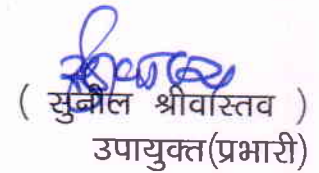 ( सुनील श्रीवास्तव )
उपायुक्त(प्रभारी)